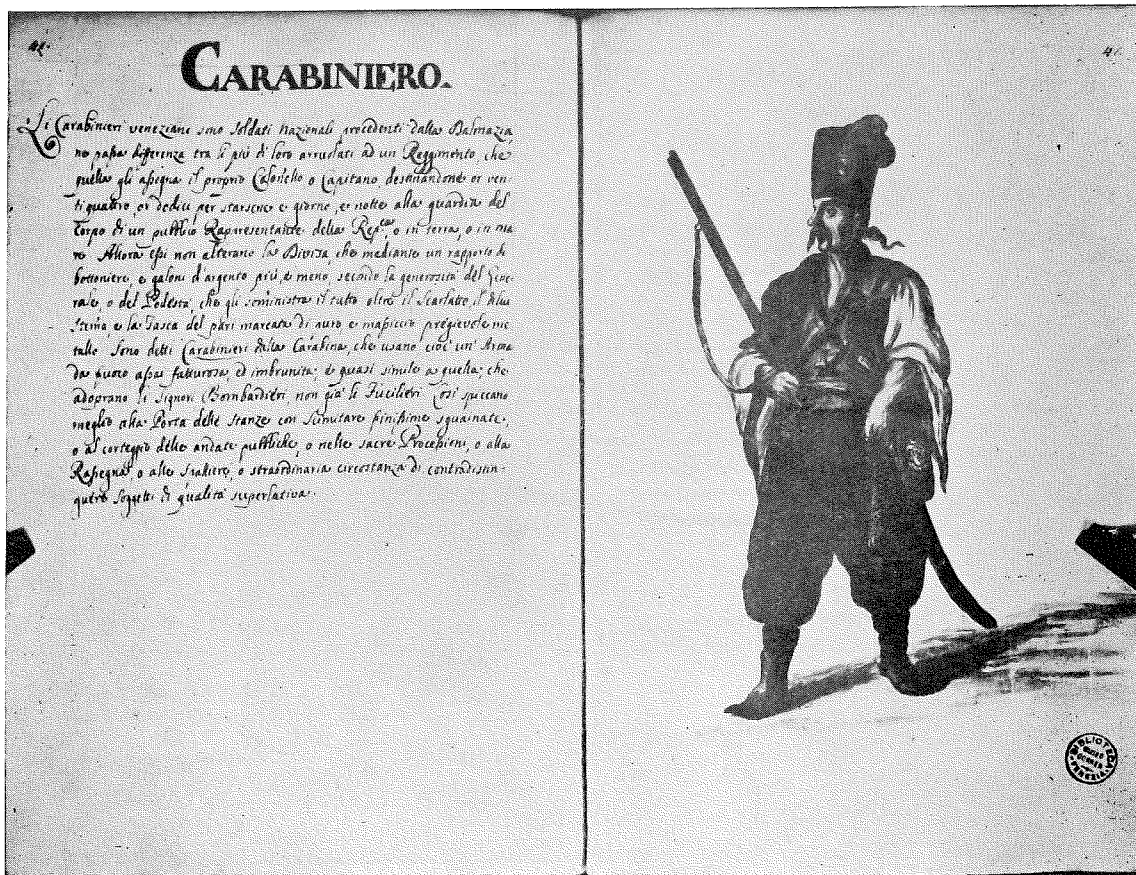 41.
CARABINIERO.
Li Carabinieri veneziani sono soldati nazionali procedenti dalla Dalmazia,
ne passa differenza tra li più di loro arruolati ad un Reggimento, che
quella gli assegna il proprio Colonello o Capitano destinandone or ven-
tiquattro, or dodici per starsene e giorno, e notte alla guardia del
Corpo di un pubblico Rapresentante della Rep.ca, o in terra, o in ma
re Allora essi non alterano la Divisa, che mediante un rapporto di
bottoniere, e galoni d'argento più, e meno, secondo la generosità del Gene-
rale, o del Podestà, che gli somministra il tutto oltre il Scarlatto, il
e la Tasca del pari marcata di puro e massiccio pregievole me
tallo Sono detti Carabinieri dalla Carabina, che usano cioè un' Arma
da fuoco assai fatturosa, ed imbrunita, e quasi simile a quella, che
adoprano li Signori Bombardieri, non già li Fucilieri Così spiccano
meglio alla Porta delle Stanze con Scimitare finissime sguainate,
o al corteggio delle andate pubbliche, o nelle sacre Processioni, o alla
Rassegna, o alle, o straordinaria circostanza di contradistin-
guere soggetti di qualità superlativa.
41.
BIBLIOTECA
CIVICO
CORRER
VENEZIA